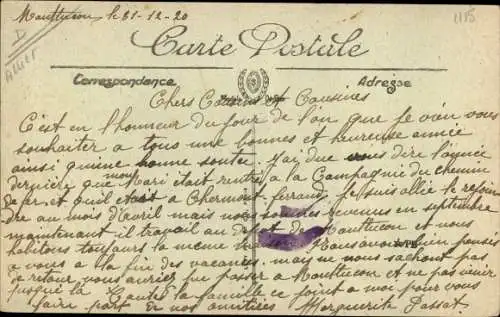 Montlucon le 31-12-20
1185
I
Allier
Carte Postale
Correspondance
Adresse
Chers Cousins et Cousines
C'est en l'honneur du jour de l'an que je vien vous
souhaiter a tous une bonnes et heureuse année
ainsi qu'une bonne santée. J'ai due vous dire l'année
dernière que mon Mari était rentré a la Campagnie du chemin
de fer et quil était a Chermont ferrand. Je suis allée le rejoin
dre au mois d'Avril mais nous sommes revenus en septembre
maintenant il travail au depot de Montlucon et nous
habitons toujours la meme Nous avons bien pensés
a vous a la fin des vacances. mais ne nous sachant pas
de retour vous auriez pu passer a Montlucon et ne pas venir
jusque la toute la famille ce joint a moi pour vous
faire part de nos amitiées Marguerite Passat